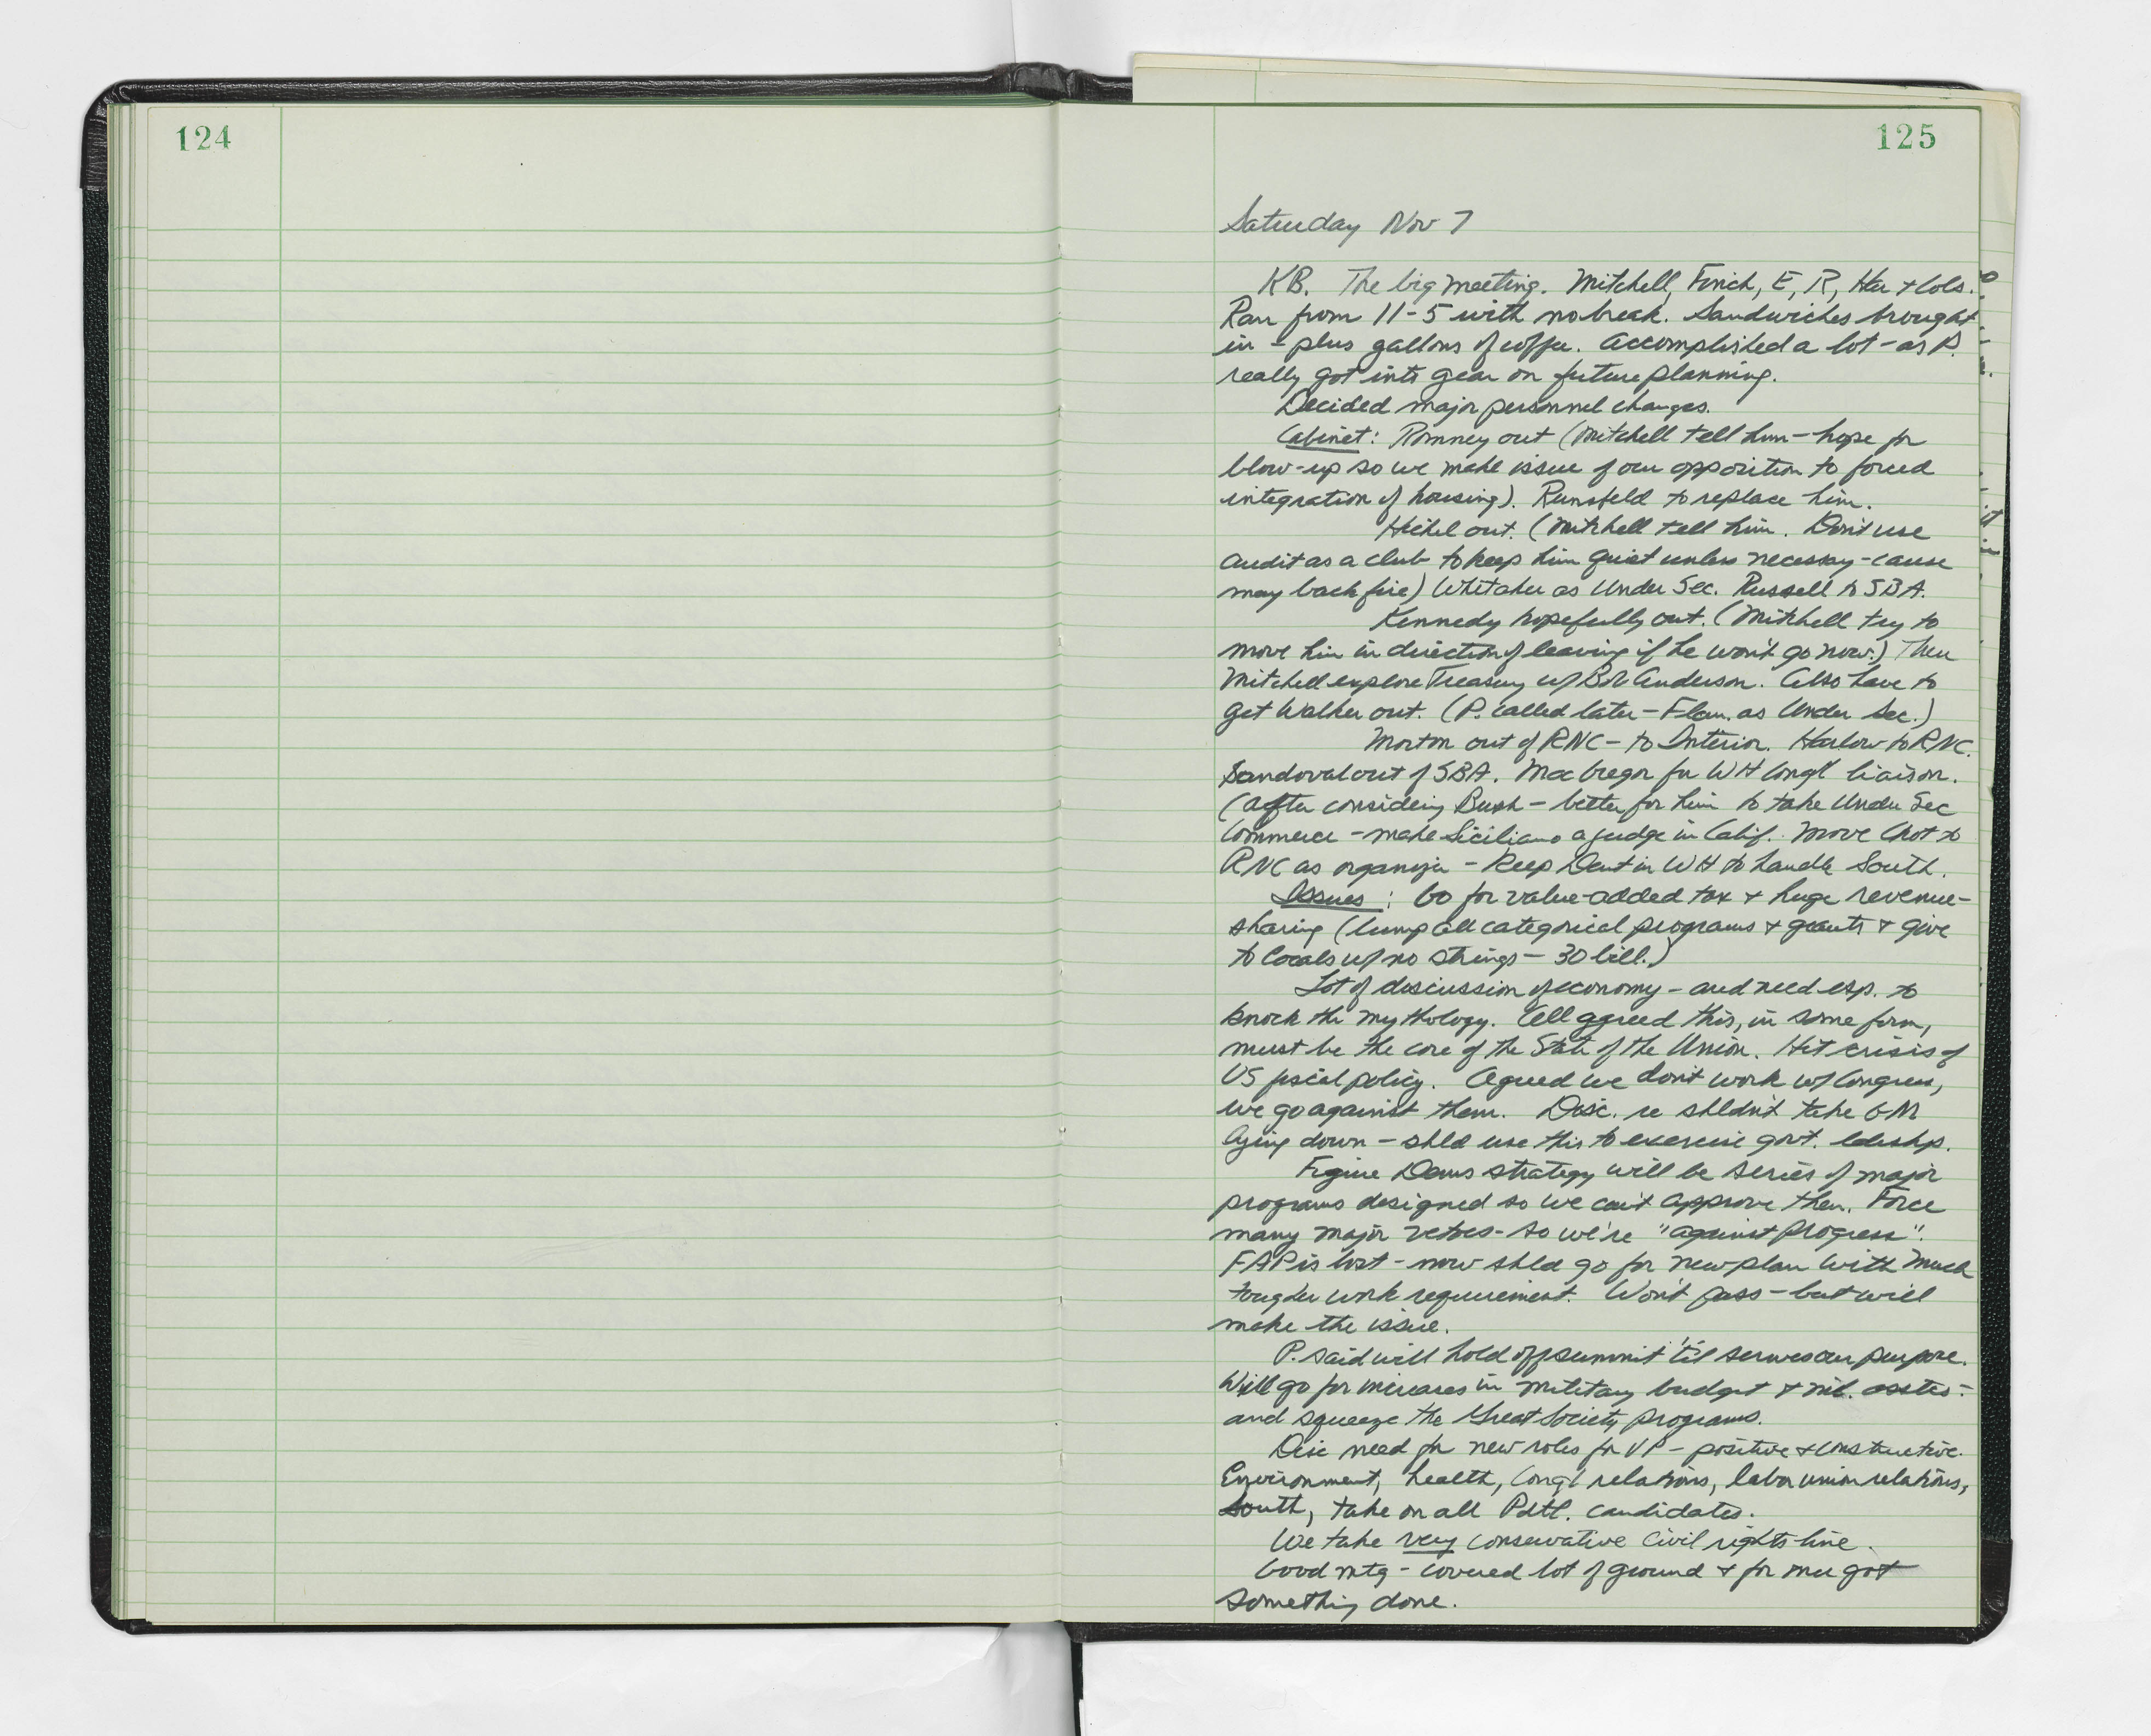 124
125
Saturday Nov 7
KB. The big meeting. Mitchell, Finch, E, R, Har & Cols.
Ran from 11-5 with no break. Sandwiches brought
in - plus gallons of coffee. Accomplished a lot - as P.
really got into gear on future planning.
Decided major personnel changes.
Cabinet: Romney out (Mitchell tell him - hope for
blow-up so we make issue of our opposition to forced
integration of housing). Rumsfeld to replace him.
Hickel out. (Mitchell tell him. Don't use
audit as a club to keep him quiet unless necessary - cause
may back fire) Whitaker as Under Sec. Russell to SBA.
Kennedy hopefully out. (Mitchell try to
move him in direction of leaving if he won't go now.) Then
Mitchell explore Treasury w/ Bob Anderson. Also have to
get Walker out. (P. called later - Flan. as Under Sec.)
Morton out of RNC - to Interior. Harlow to RNC.
Sandoval out of SBA. MacGregor for WH Congl liaison.
(after considering Bush - better for him to take Under Sec
Commerce - make Siciliano a judge in Calif. Move Chot to
RNC as organizer - keep Dent in WH to handle South.
Issues: Go for value-added tax & huge revenue-
sharing (lump all categorical programs & grants & give
to locals w/ no strings - 30 bill.)
Lot of discussion of economy - and need esp. to
knock the mythology. All agreed this, in some form,
must be the core of the State of the Union. Hit crisis of
US fiscal policy. Agreed we don't work w/ Congress,
we go against them. Disc. re shldn't take GM
lying down - shld use this to exercise govt. ldership.
Figure Dems strategy will be series of major
programs designed so we can't approve them. Force
many major vetoes - so we're "against progress".
FAP is lost - now shld go for new plan with much
tougher work requirement. Won't pass - but will
make the issue.
P. said will hold off summit 'til serves our purpose.
Will go for increases in military budget & mil. asstes -
and squeeze the Great Society programs.
Disc need for new roles for VP - positive & constructive.
Environment, health, Congl relations, labor union relations,
South, take on all Pdtl. candidates.
We take very conservative civil rights line.
Good mtg - covered lot of ground & for once got
something done.